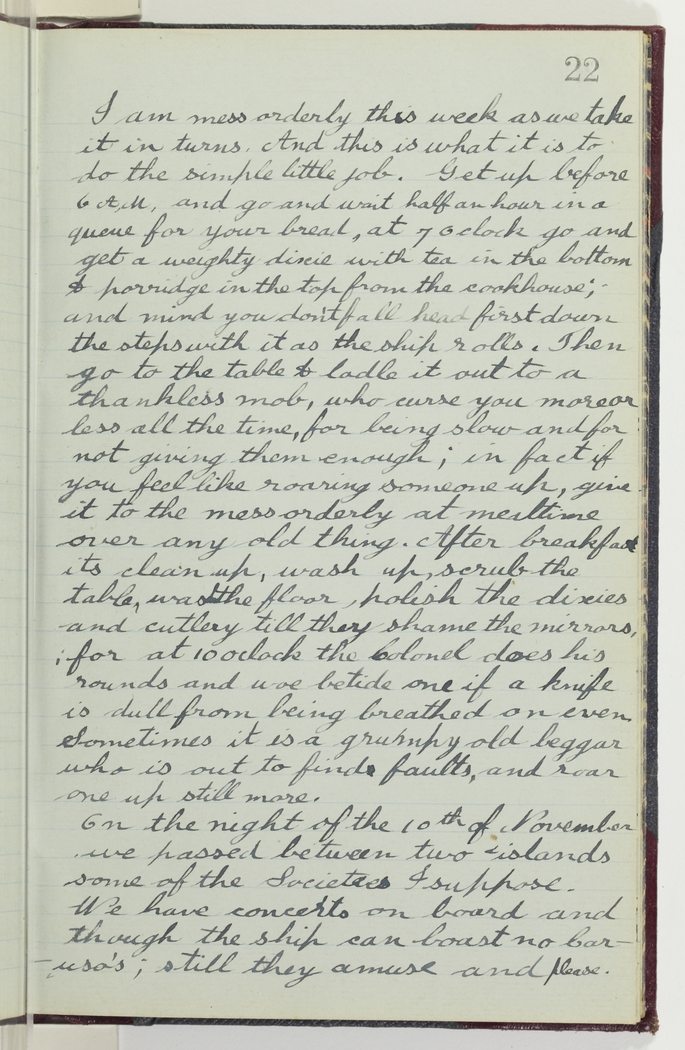 22
I am mess orderly this week as we take
it in turns. And this is what it is to
do the simple little job. Get up before
6 A.M, and go and wait half an hour in a
queue for your bread, at 7 oclock go and
get a weighty dixie with tea in the bottom
& porridge in the top from the cookhouse;-
and mind you don't fall head first down
the steps with it as the ship rolls. Then
go to the table & ladle it out to a
thankless mob, who curse you more or
less all the time, for being slow and for
not giving them enough; in fact if
you feel like roaring someone up, give
it to the mess orderly at mealtime
over any old thing. After breakfast
its clean up, wash up, scrub the
table, wash the floor, polish the dixies
and cutlery till they shame the mirrors,
; for at 10 oclock the Colonel does his
rounds and woe betide one if a knife
is dull from being breathed on even.
Sometimes it is a grumpy old beggar
who is out to find faults, and roar
one up still more.
On the night of the 10th of November
we passed between two islands
some of the Societies I suppose.
We have concerts on board and
though the ship can boast no Car-
-uso's; still they amuse and please.